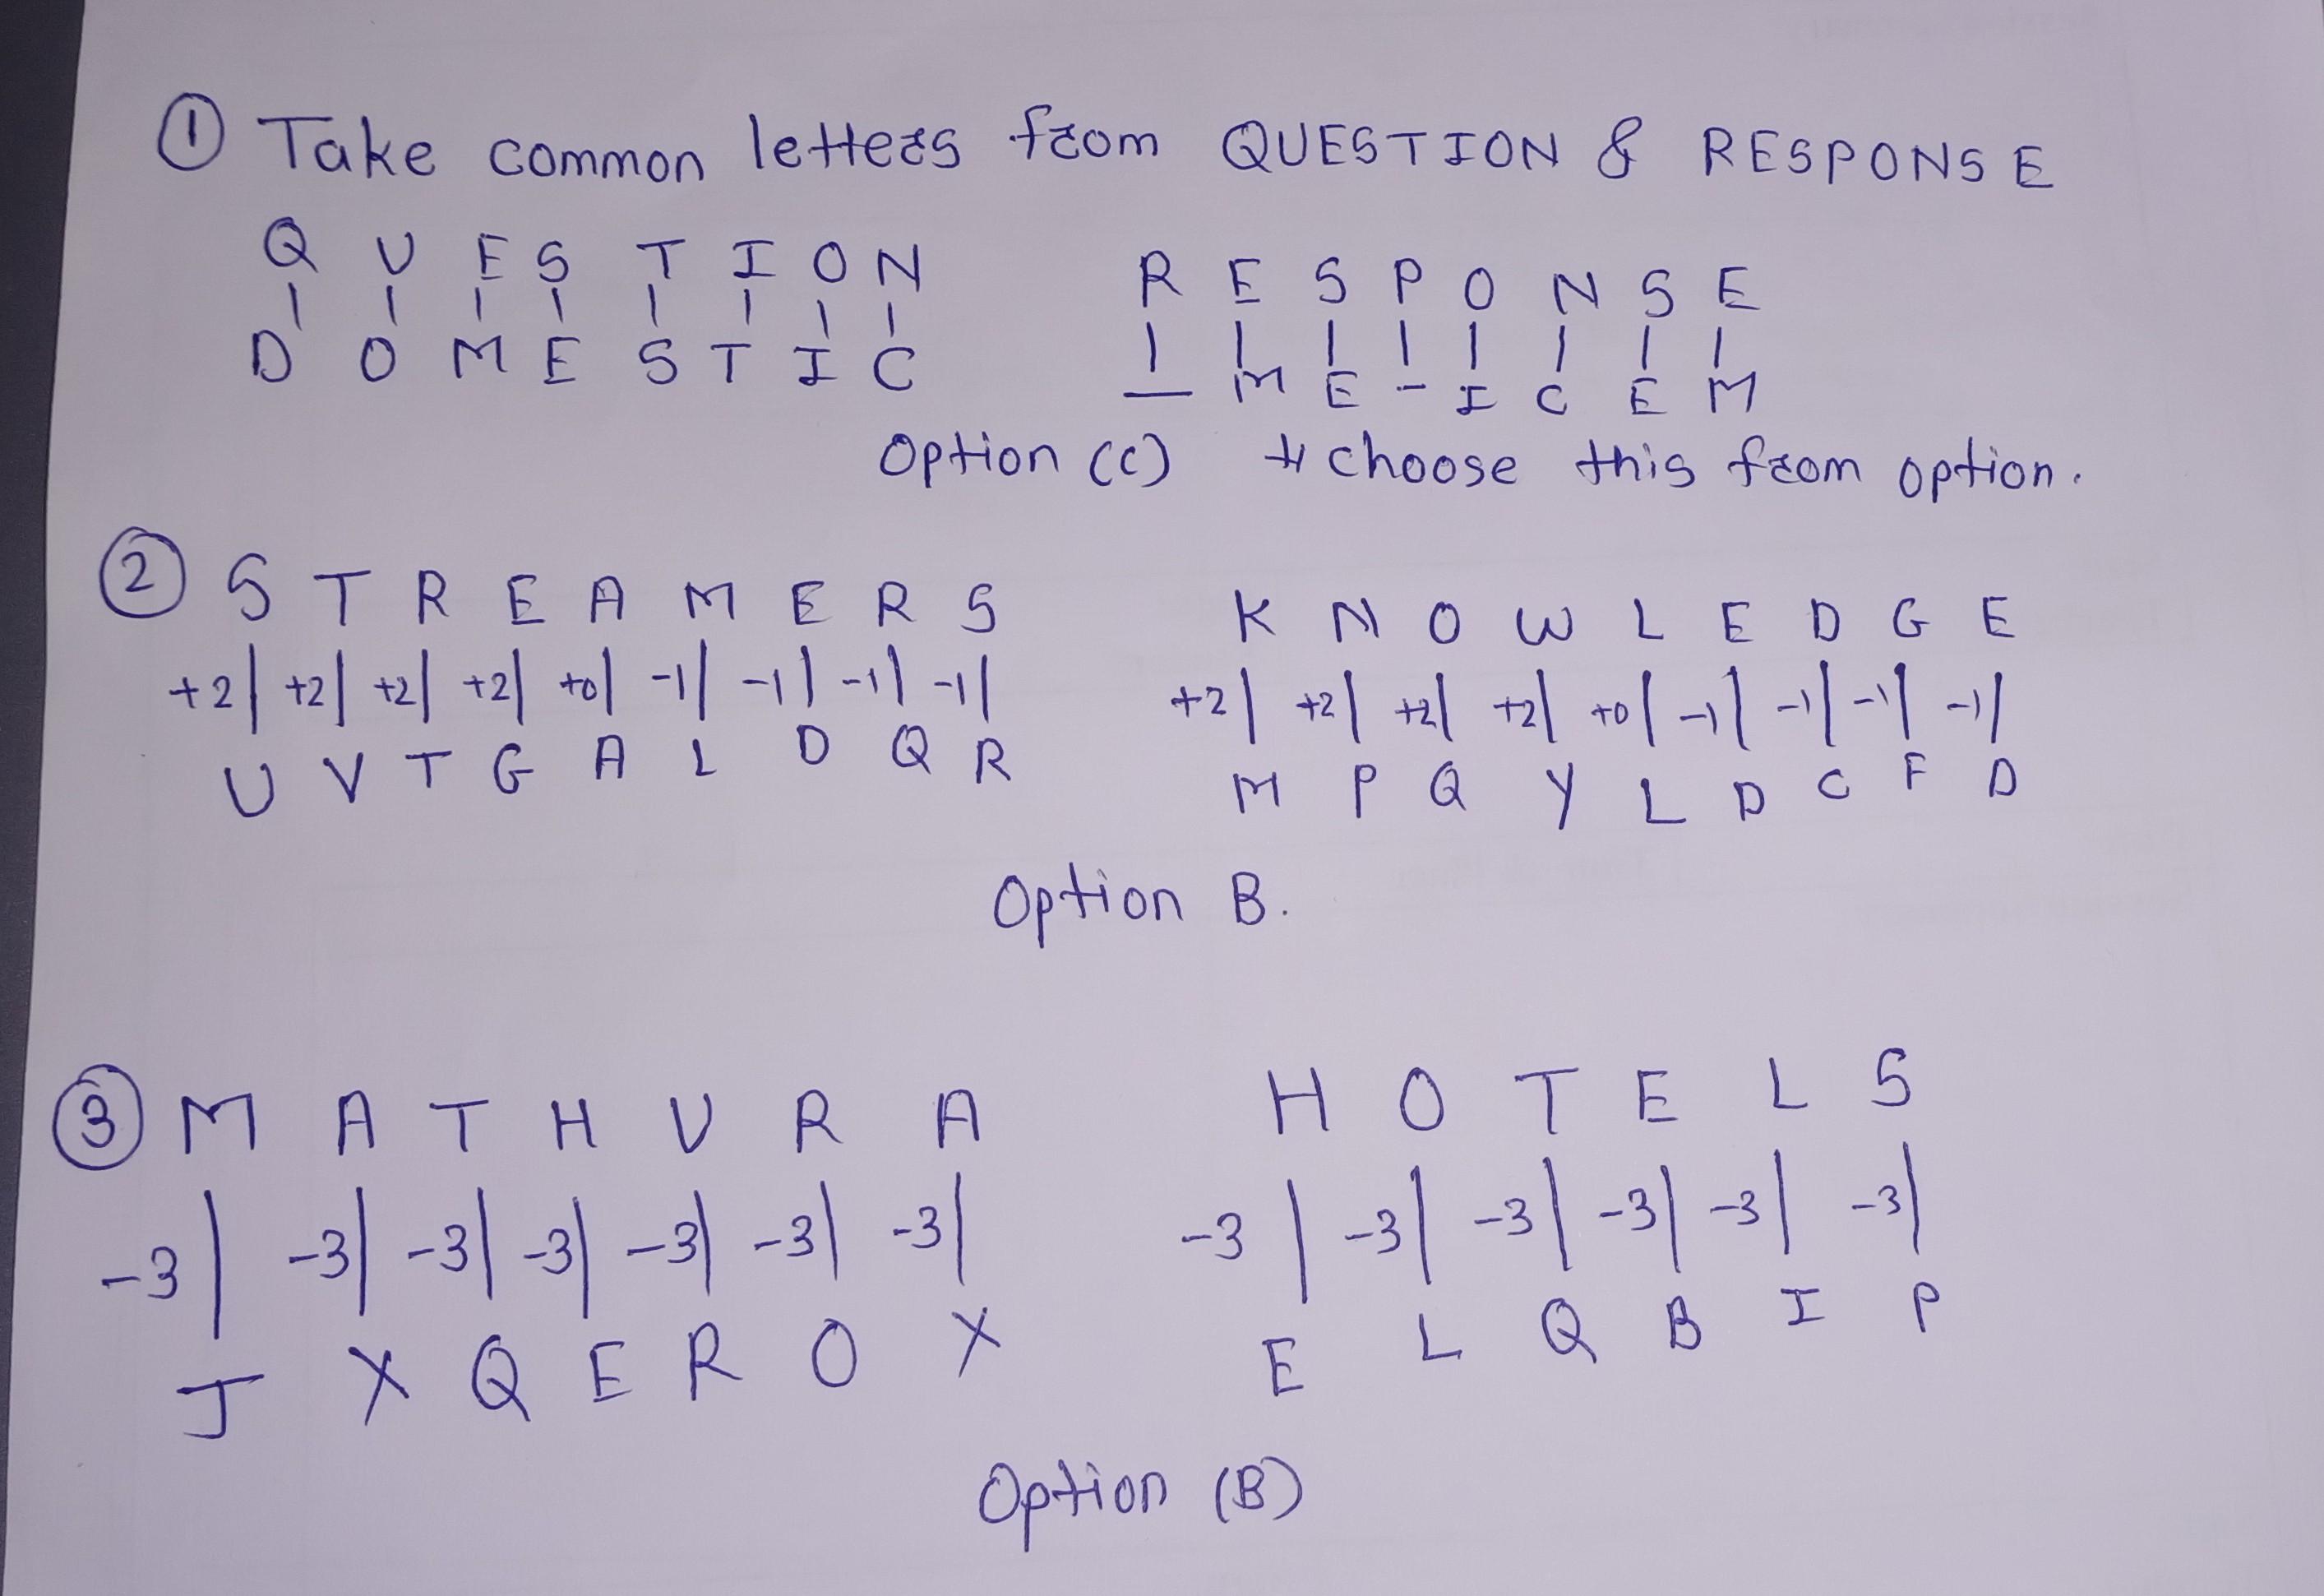 ① Take common letters from QUESTION & RESPONSE
Q U E S T I O N R E S P O N S E
| | | | | | | | | | | | | | | |
D O M E S T I C _ M E - I C E M
Option (C) choose this from option.
② S T R E A M E R S K N O W L E D G E
+2| +2| +2| +2| +0| -1| -1| -1| -1| +2| +2| +2| +2| +0| -1| -1| -1| -1|
U V T G A L D Q R M P Q Y L D C F D
Option B.
③ M A T H U R A H O T E L S
-3| -3| -3| -3| -3| -3| -3| -3| -3| -3| -3| -3| -3|
J X Q E R O X E L Q B I P
Option (B)